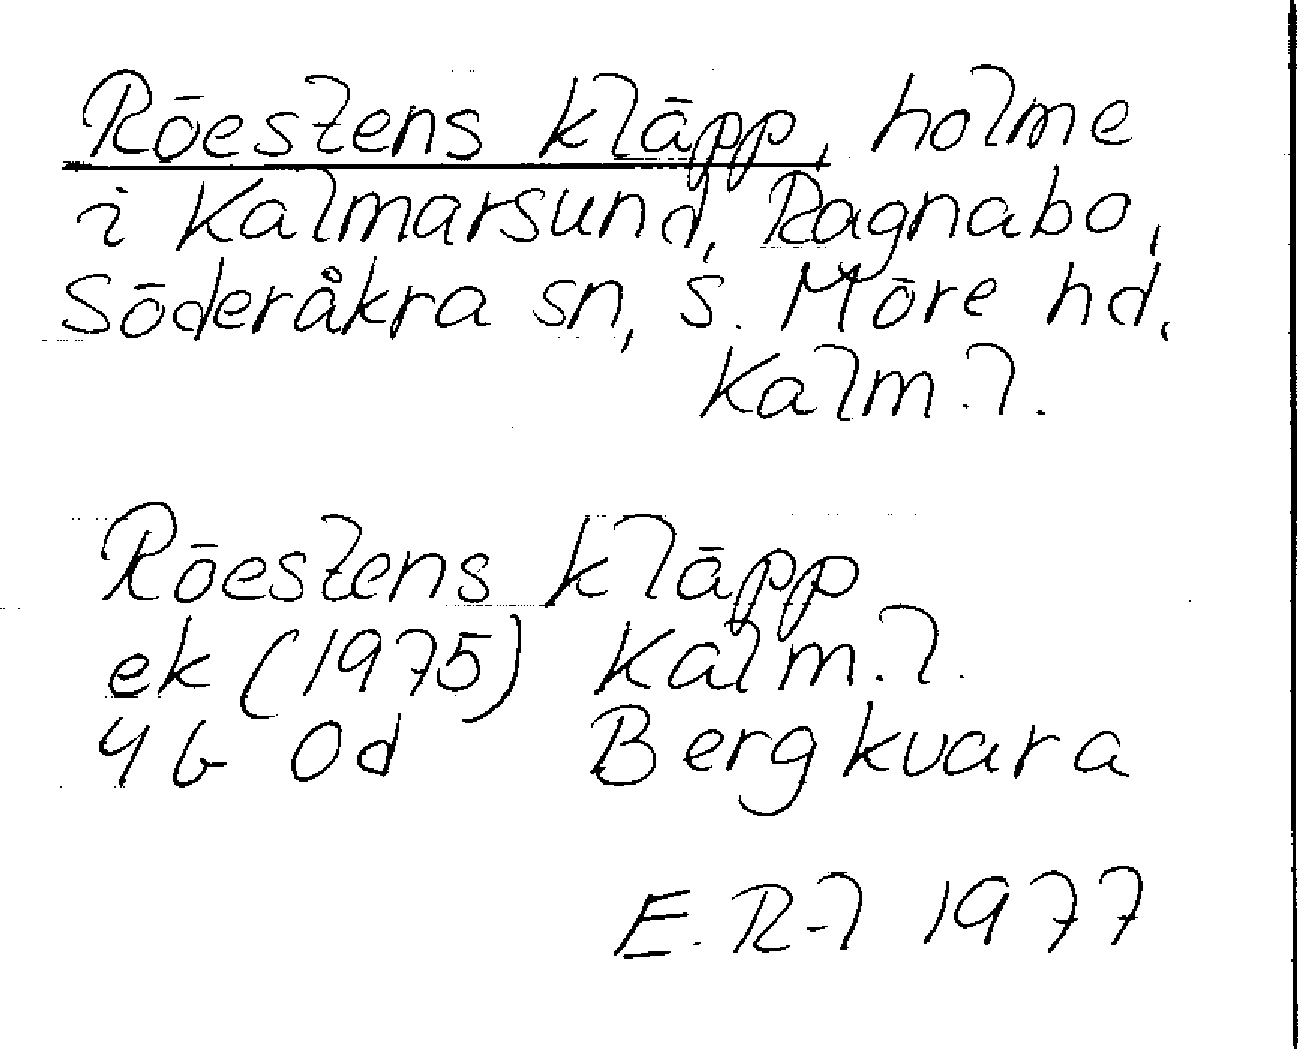 Röestens kläpp, holme
i Kalmarsund, Ragnabo,
Söderåkra sn, s. Möre hd,
Kalm. l.
Röestens kläpp
ek (1975) Kalm. l.
4 G 0d Bergkvara
E. R-l 1977